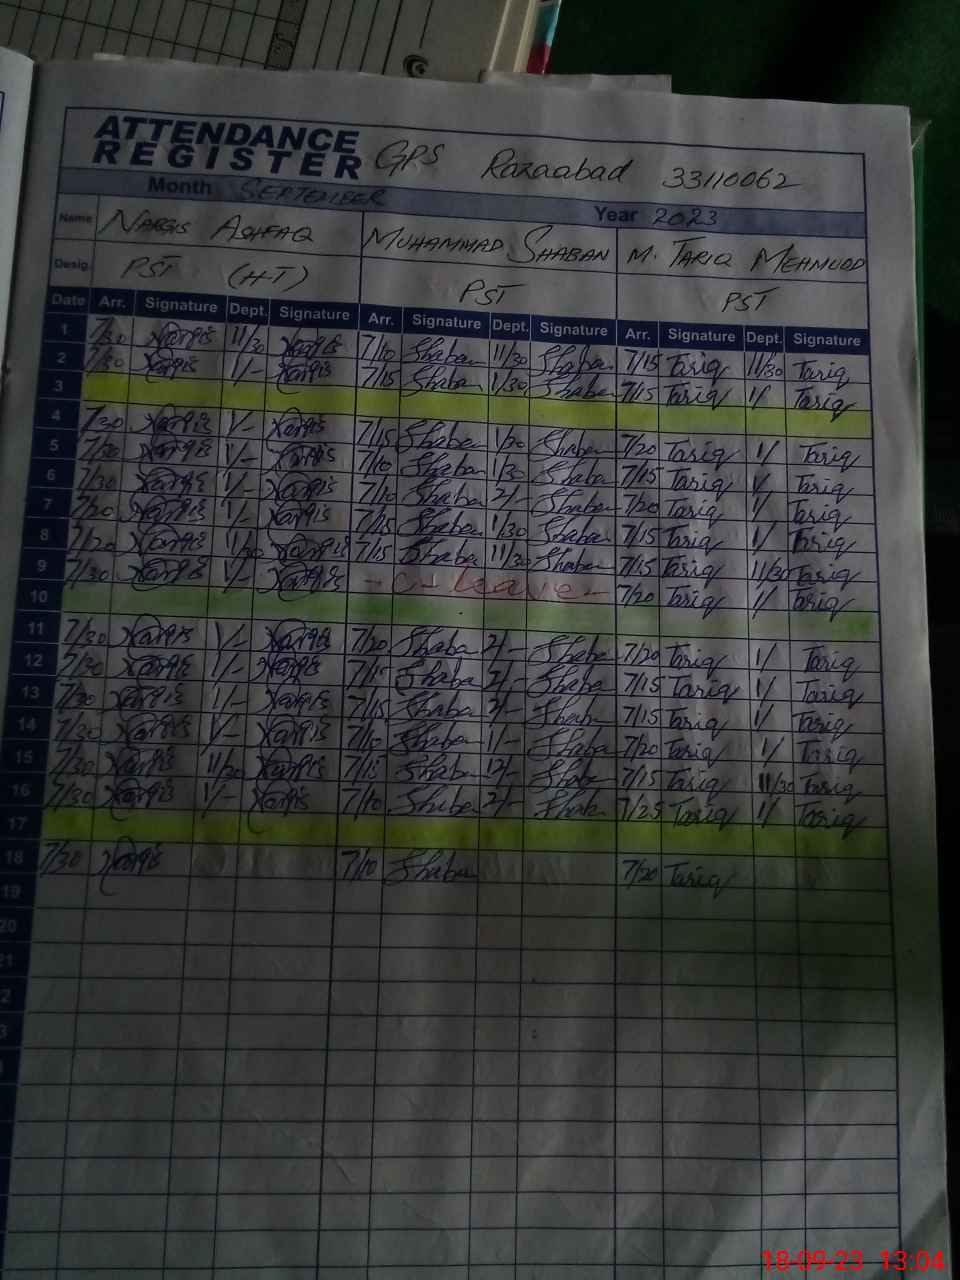 ATTENDANCE
REGISTER GPS Razaabad 33110062
Month SEPTEMBER Year 2023
Name NARGIS ASHFAQ MUHAMMAD SHABAN M. TARIQ MEHMOOD
Desig. PST (H-T) PST PST
Date Arr. Signature Dept. Signature Arr. Signature Dept. Signature Arr. Signature Dept. Signature
1 7/30 Nargis 11/30 Nargis 7/10 Shaban 11/30 Shaban 7/15 Tariq 11/30 Tariq
2 7/30 Nargis 1/- Nargis 7/15 Shaban 1/30 Shaban 7/15 Tariq 1/ Tariq
3
4 7/30 Nargis 1/- Nargis 7/15 Shaban 1/30 Shaban 7/20 Tariq 1/ Tariq
5 7/30 Nargis 1/- Nargis 7/10 Shaban 1/30 Shaban 7/15 Tariq 1/ Tariq
6 7/30 Nargis 1/- Nargis 7/10 Shaban 2/- Shaban 7/20 Tariq 1/ Tariq
7 7/20 Nargis 1/- Nargis 7/15 Shaban 1/30 Shaban 7/15 Tariq 1/ Tariq
8 7/20 Nargis 11/30 Nargis 7/15 Shaban 11/30 Shaban 7/15 Tariq 11/30 Tariq
9 7/30 Nargis 1/- Nargis - leave - 7/20 Tariq 1/ Tariq
10
11 7/30 Nargis 1/- Nargis 7/20 Shaban 2/- Shaban 7/20 Tariq 1/ Tariq
12 7/30 Nargis 1/- Nargis Shaban 2/- Shaban 7/15 Tariq 1/ Tariq
13 7/30 Nargis 1/- Nargis 7/15 Shaban 2/- Shaban 7/15 Tariq 1/ Tariq
14 7/30 Nargis 1/- Nargis 7/10 Shaban 1/- Shaban 7/20 Tariq 1/ Tariq
15 7/30 Nargis Nargis 7/15 Shaban 12/- Shaban 7/15 Tariq 11/30 Tariq
16 7/30 Nargis 1/- Nargis 7/10 Shaban 2/- Shaban 7/25 Tariq 1/ Tariq
17
18 7/30 Nargis 7/10 Shaban 7/20 Tariq
19
20
21
2
3
18-09-23 13:04